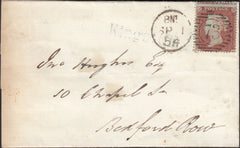 BN
SP 1
56
Jno Hughes Esq
10 Chapel St
Bedford Row